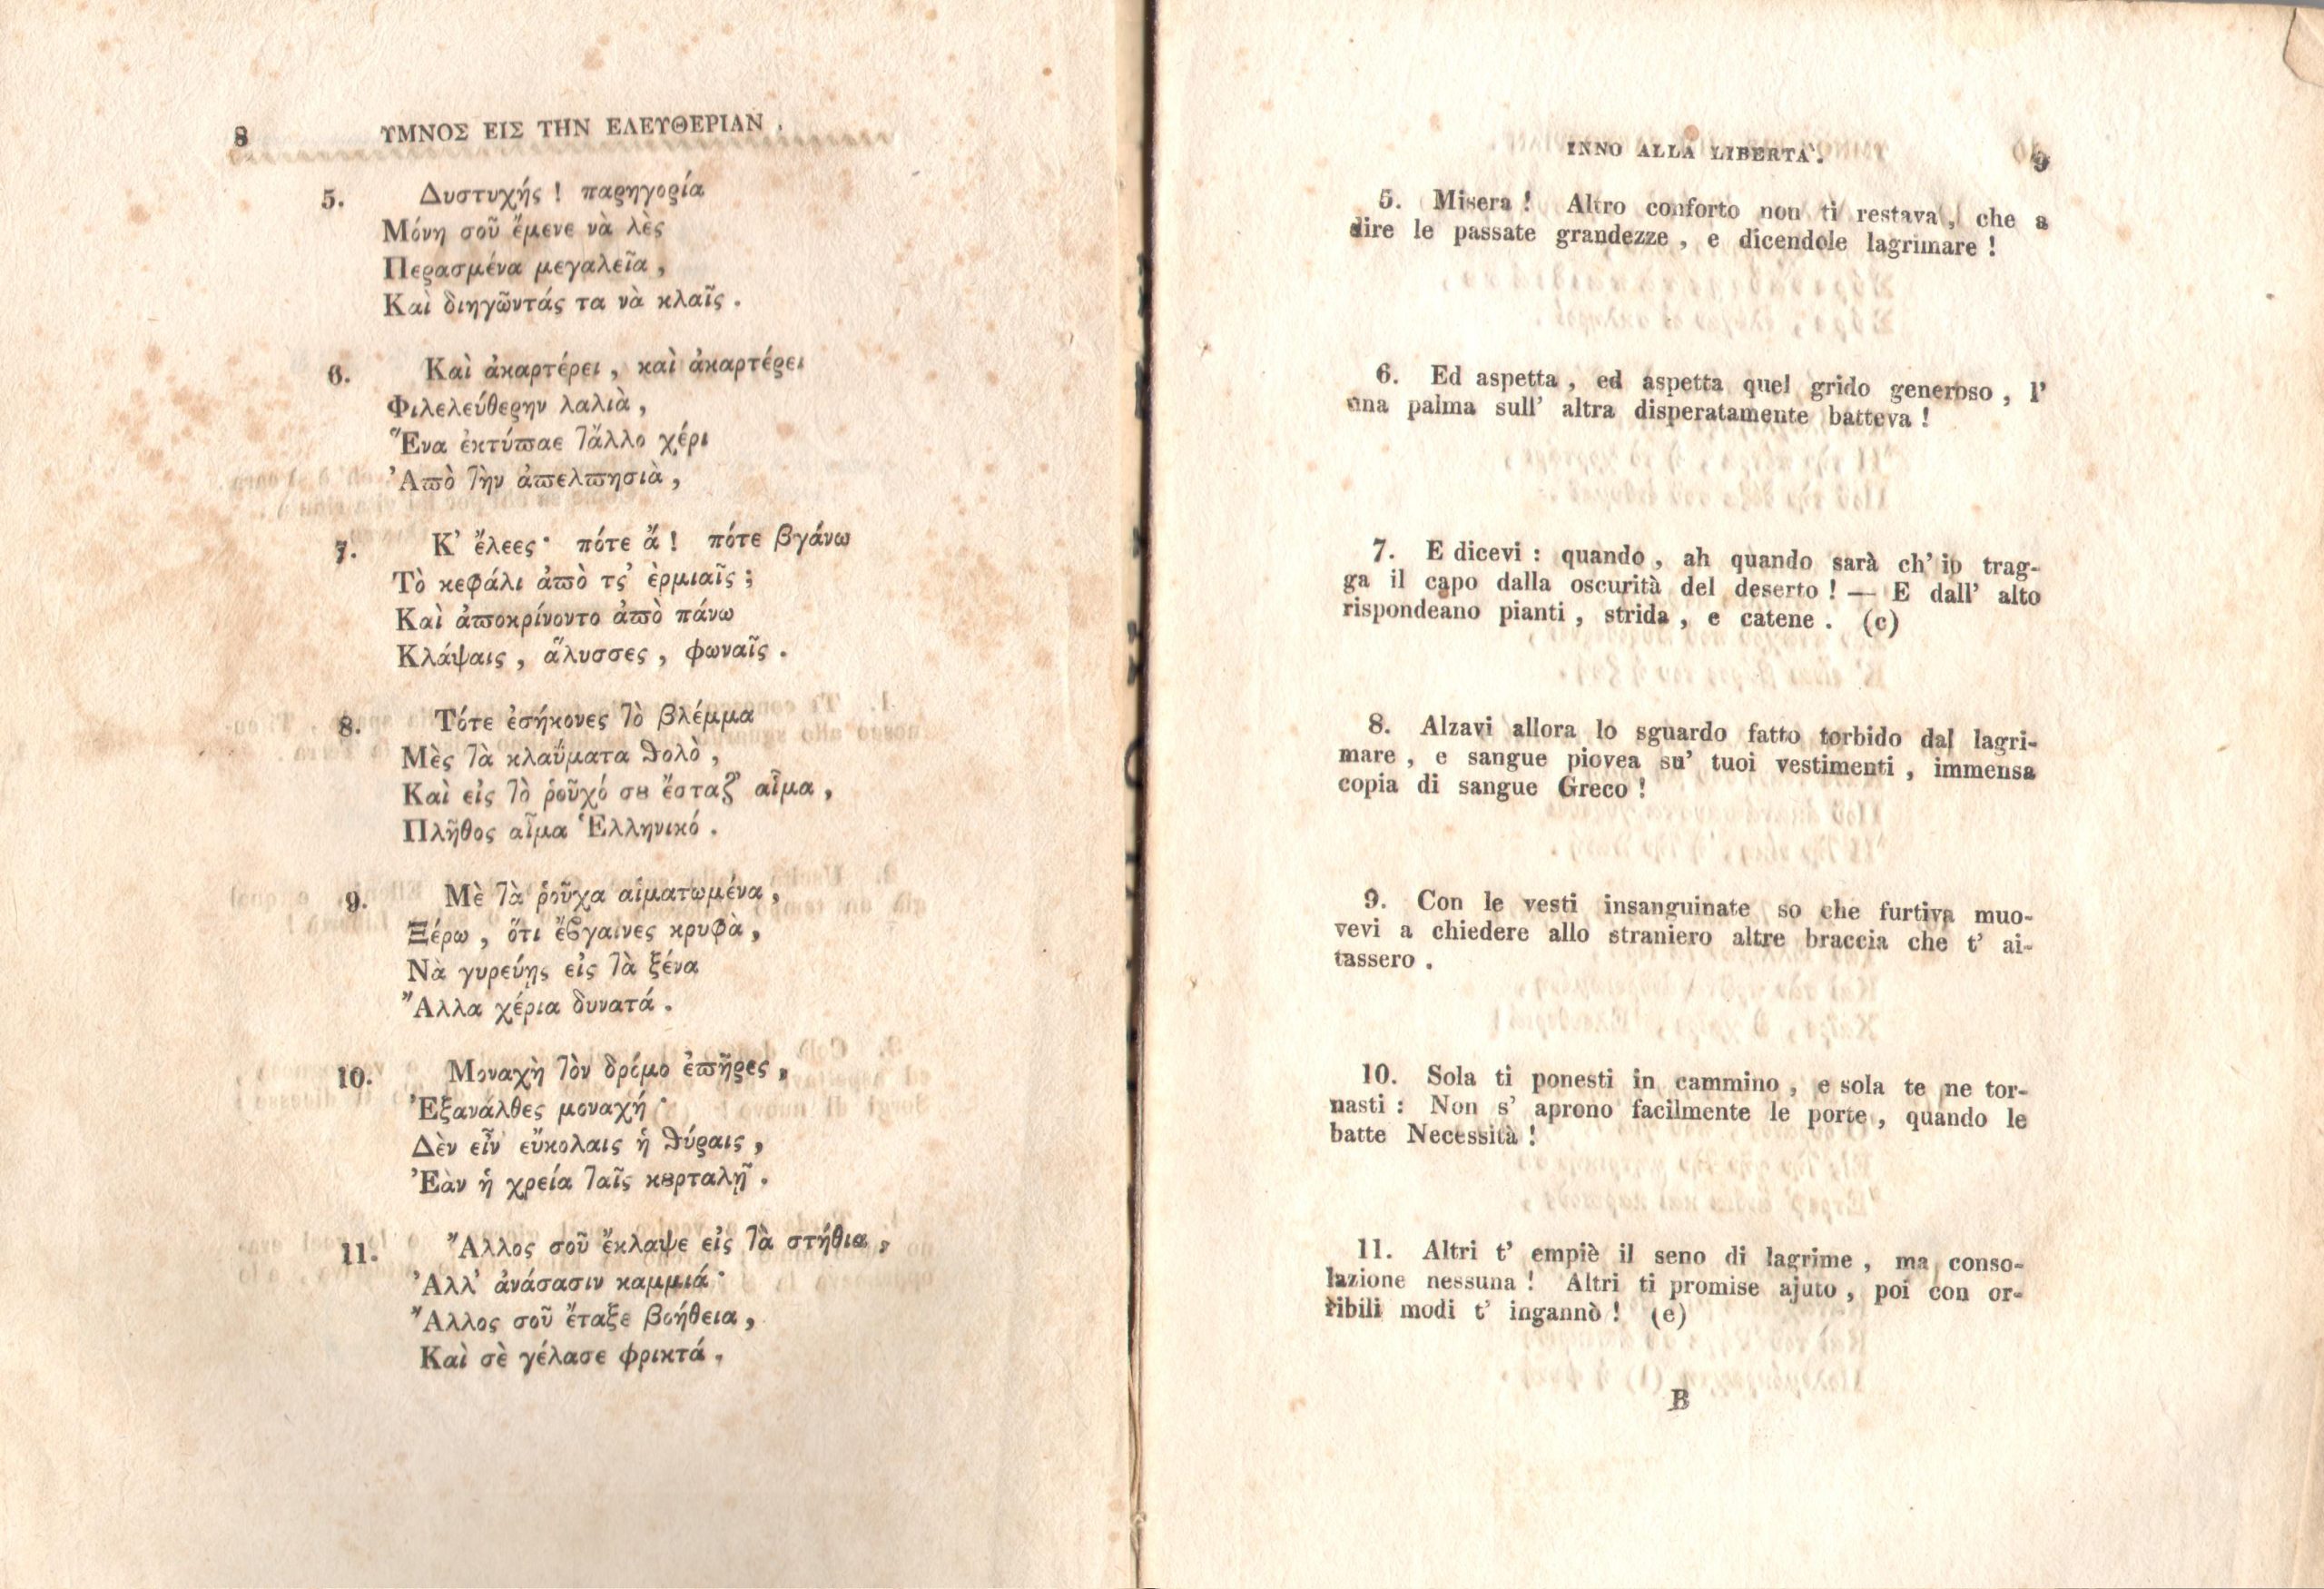 8 ΥΜΝΟΣ ΕΙΣ ΤΗΝ ΕΛΕΥΘΕΡΙΑΝ .
5. Δυστυχής ! παρηγορία
Μόνη σοῦ ἔμενε νὰ λὲς
Περασμένα μεγαλεῖα ,
Καὶ διηγῶντάς τα νὰ κλαῖς .
6. Καὶ ἀκαρτέρει , καὶ ἀκαρτέρει
Φιλελεύθερην λαλιὰ ,
Ἕνα ἐκτύπαε τἄλλο χέρι
Ἀπὸ τὴν ἀπελπησιὰ ,
7. Κ' ἔλεες· πότε ἄ ! πότε βγάνω
Τὸ κεφάλι ἀπὸ τς' ἐρμιαῖς ;
Καὶ ἀποκρίνοντο ἀπὸ πάνω
Κλάψαις , ἅλυσσες , φωναῖς .
8. Τότε ἐσήκονες τὸ βλέμμα
Μὲς τὰ κλαΰματα θολὸ ,
Καὶ εἰς τὸ ῥοῦχό σȣ ἔσταξ' αἷμα ,
Πλῆθος αἷμα Ἑλληνικό .
9. Μὲ τὰ ῥοῦχα αἱματωμένα ,
Ξέρω , ὅτι ἔβγαινες κρυφὰ ,
Νὰ γυρεύῃς εἰς τὰ ξένα
Ἄλλα χέρια δυνατά .
10. Μοναχὴ τὸν δρόμο ἐπῆρες ,
Ἐξανάλθες μοναχή·
Δὲν εἶν' εὔκολαις ἡ θύραις ,
Ἐὰν ἡ χρεία ταῖς κȣρταλῇ .
11. Ἄλλος σοῦ ἔκλαψε εἰς τὰ στήθια ,
Ἀλλ' ἀνάσασιν καμμιά·
Ἄλλος σοῦ ἔταξε βοήθεια ,
Καὶ σὲ γέλασε φρικτά .
INNO ALLA LIBERTA'. 9
5. Misera ! Altro conforto non ti restava , che a
dire le passate grandezze , e dicendole lagrimare !
6. Ed aspetta , ed aspetta quel grido generoso , l'
una palma sull' altra disperatamente batteva !
7. E dicevi : quando , ah quando sarà ch' io trag-
ga il capo dalla oscurità del deserto ! — E dall' alto
rispondeano pianti , strida , e catene . (c)
8. Alzavi allora lo sguardo fatto torbido dal lagri-
mare , e sangue piovea su' tuoi vestimenti , immensa
copia di sangue Greco !
9. Con le vesti insanguinate so che furtiva muo-
vevi a chiedere allo straniero altre braccia che t' ai-
tassero .
10. Sola ti ponesti in cammino , e sola te ne tor-
nasti : Non s' aprono facilmente le porte , quando le
batte Necessità !
11. Altri t' empiè il seno di lagrime , ma conso-
lazione nessuna ! Altri ti promise ajuto , poi con or-
ribili modi t' ingannò ! (e)
B